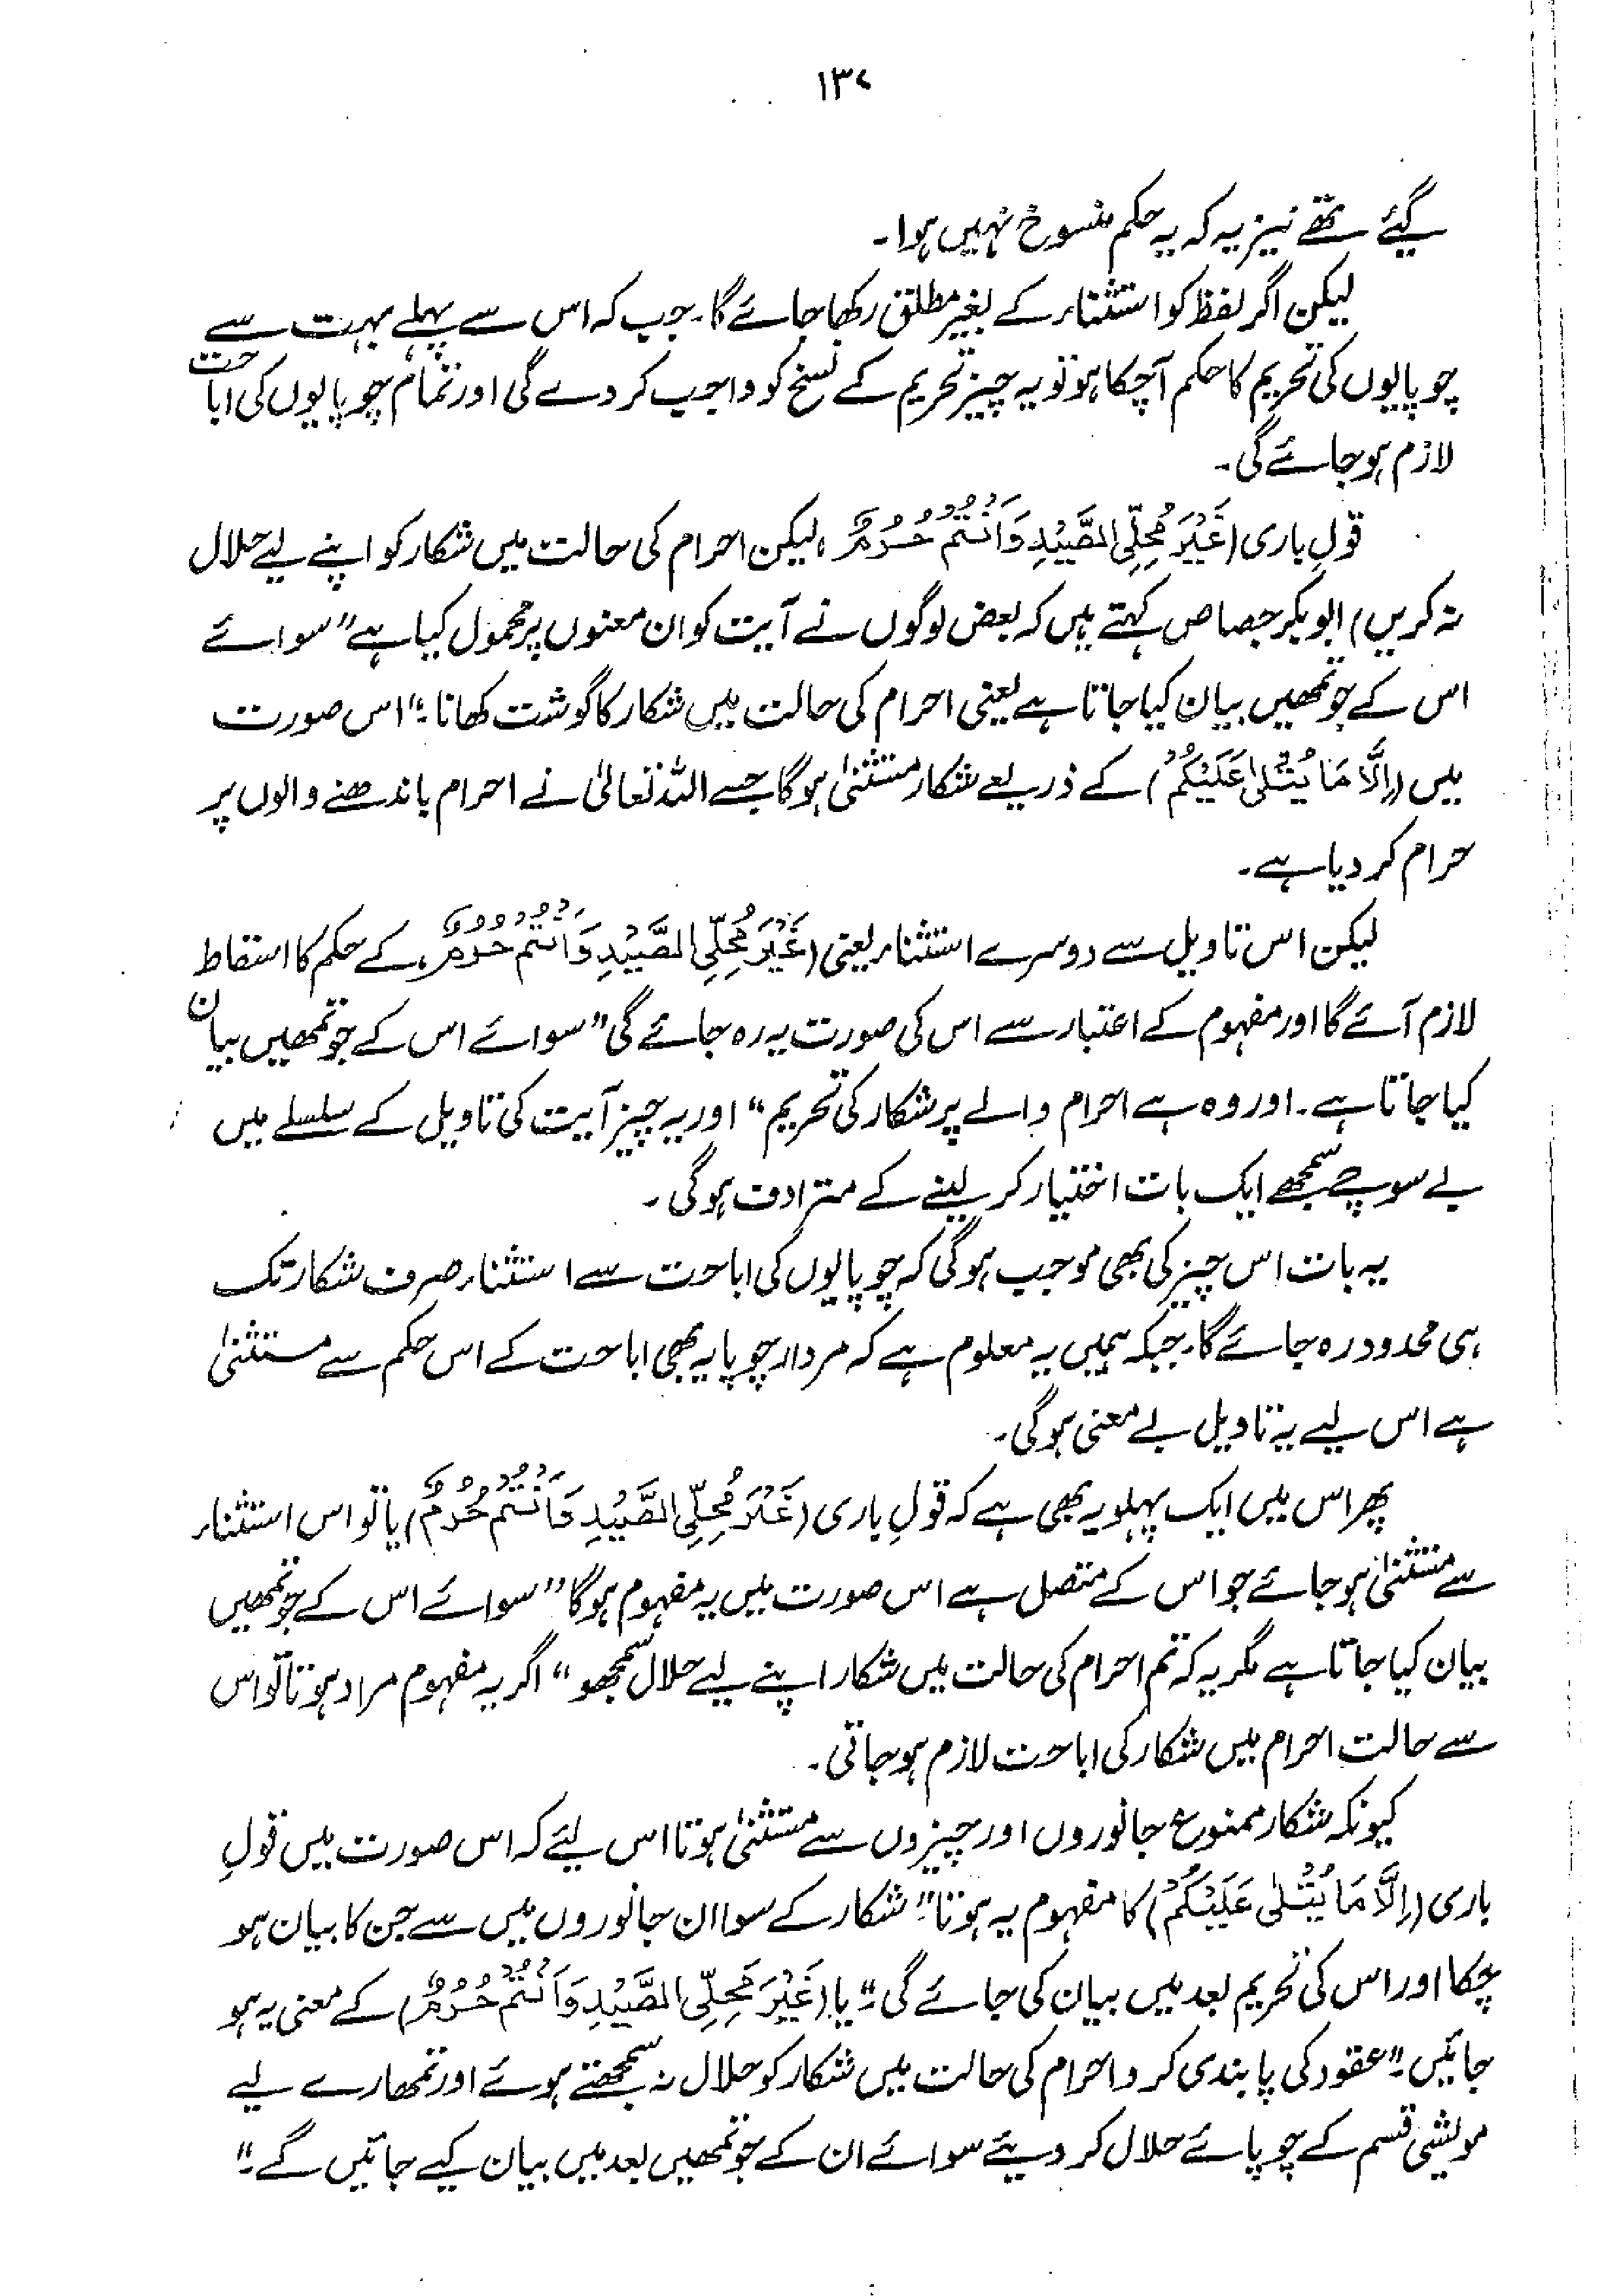 ۱۳۷
گیئے تھے نیز یہ کہ یہ حکم منسوخ نہیں ہوا۔
لیکن اگر لفظ کو استثناء کے بغیر مطلق رکھا جائے گا۔ جب کہ اس سے پہلے بہت سے
چوپایوں کی تحریم کا حکم آچکا ہو تو یہ چیز تحریم کے نسخ کو واجب کر دے گی اور تمام چوپایوں کی اباحت
لازم ہو جائے گی۔
قولِ باری (غَيْرَ مُحِلِّي الصَّيْدِ وَاَنْتُمْ حُرُمٌ، لیکن احرام کی حالت میں شکار کو اپنے لیے حلال
نہ کریں) ابوبکر جصاص کہتے ہیں کہ بعض لوگوں نے آیت کو ان معنوں پر محمول کیا ہے "سوائے
اس کے جو تمھیں بیان کیا جاتا ہے یعنی احرام کی حالت میں شکار کا گوشت کھانا۔" اس صورت
میں (اِلَّا مَا يُتْلٰى عَلَيْكُمْ) کے ذریعے شکار مستثنیٰ ہوگا جسے اللہ تعالیٰ نے احرام باندھنے والوں پر
حرام کر دیا ہے۔
لیکن اس تاویل سے دوسرے استثناء یعنی (غَيْرَ مُحِلِّي الصَّيْدِ وَاَنْتُمْ حُرُمٌ) کے حکم کا اسقاط
لازم آئے گا اور مفہوم کے اعتبار سے اس کی صورت یہ رہ جائے گی "سوائے اس کے جو تمھیں بیان
کیا جاتا ہے۔ اور وہ ہے احرام والے پر شکار کی تحریم" اور یہ چیز آیت کی تاویل کے سلسلے میں
بے سوچے سمجھے ایک بات اختیار کر لینے کے مترادف ہوگی۔
یہ بات اس چیز کی بھی موجب ہوگی کہ چوپایوں کی اباحت سے استثناء صرف شکار تک
ہی محدود رہ جائے گا۔ جبکہ ہمیں یہ معلوم ہے کہ مردار چوپایہ بھی اباحت کے اس حکم سے مستثنیٰ
ہے اس لیے یہ تاویل بے معنی ہوگی۔
پھر اس میں ایک پہلو یہ بھی ہے کہ قولِ باری (غَيْرَ مُحِلِّي الصَّيْدِ وَاَنْتُمْ حُرُمٌ) یا تو اس استثناء
سے مستثنیٰ ہو جائے جو اس کے متصل ہے اس صورت میں یہ مفہوم ہوگا "سوائے اس کے جو تمھیں
بیان کیا جاتا ہے مگر یہ کہ تم احرام کی حالت میں شکار اپنے لیے حلال سمجھو" اگر یہ مفہوم مراد ہوتا تو اس
سے حالت احرام میں شکار کی اباحت لازم ہو جاتی۔
کیونکہ شکار ممنوع جانوروں اور چیزوں سے مستثنیٰ ہوتا اس لیئے کہ اس صورت میں قولِ
باری (اِلَّا مَا يُتْلٰى عَلَيْكُمْ) کا مفہوم یہ ہوتا "شکار کے سوا ان جانوروں میں سے جن کا بیان ہو
چکا اور اس کی تحریم بعد میں بیان کی جائے گی۔" یا (غَيْرَ مُحِلِّي الصَّيْدِ وَاَنْتُمْ حُرُمٌ) کے معنی یہ ہو
جائیں۔ "عقود کی پابندی کرو احرام کی حالت میں شکار کو حلال نہ سمجھتے ہوئے اور تمھارے لیے
مویشی قسم کے چوپائے حلال کر دیئے سوائے ان کے جو تمھیں بعد میں بیان کیے جائیں گے۔"